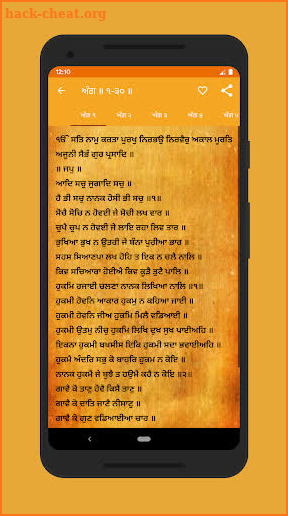 hack-cheat.org
12:10
ਅੰਗ ॥ ੧-੩੦ ॥
ਅੰਗ ੧ ਅੰਗ ੨ ਅੰਗ ੩ ਅੰਗ ੪ ਅੰਗ ੫
ੴ ਸਤਿ ਨਾਮੁ ਕਰਤਾ ਪੁਰਖੁ ਨਿਰਭਉ ਨਿਰਵੈਰੁ ਅਕਾਲ ਮੂਰਤਿ
ਅਜੂਨੀ ਸੈਭੰ ਗੁਰ ਪ੍ਰਸਾਦਿ ॥
॥ ਜਪੁ ॥
ਆਦਿ ਸਚੁ ਜੁਗਾਦਿ ਸਚੁ ॥
ਹੈ ਭੀ ਸਚੁ ਨਾਨਕ ਹੋਸੀ ਭੀ ਸਚੁ ॥੧॥
ਸੋਚੈ ਸੋਚਿ ਨ ਹੋਵਈ ਜੇ ਸੋਚੀ ਲਖ ਵਾਰ ॥
ਚੁਪੈ ਚੁਪ ਨ ਹੋਵਈ ਜੇ ਲਾਇ ਰਹਾ ਲਿਵ ਤਾਰ ॥
ਭੁਖਿਆ ਭੁਖ ਨ ਉਤਰੀ ਜੇ ਬੰਨਾ ਪੁਰੀਆ ਭਾਰ ॥
ਸਹਸ ਸਿਆਣਪਾ ਲਖ ਹੋਹਿ ਤ ਇਕ ਨ ਚਲੈ ਨਾਲਿ ॥
ਕਿਵ ਸਚਿਆਰਾ ਹੋਈਐ ਕਿਵ ਕੂੜੈ ਤੁਟੈ ਪਾਲਿ ॥
ਹੁਕਮਿ ਰਜਾਈ ਚਲਣਾ ਨਾਨਕ ਲਿਖਿਆ ਨਾਲਿ ॥੧॥
ਹੁਕਮੀ ਹੋਵਨਿ ਆਕਾਰ ਹੁਕਮੁ ਨ ਕਹਿਆ ਜਾਈ ॥
ਹੁਕਮੀ ਹੋਵਨਿ ਜੀਅ ਹੁਕਮਿ ਮਿਲੈ ਵਡਿਆਈ ॥
ਹੁਕਮੀ ਉਤਮੁ ਨੀਚੁ ਹੁਕਮਿ ਲਿਖਿ ਦੁਖ ਸੁਖ ਪਾਈਅਹਿ ॥
ਇਕਨਾ ਹੁਕਮੀ ਬਖਸੀਸ ਇਕਿ ਹੁਕਮੀ ਸਦਾ ਭਵਾਈਅਹਿ ॥
ਹੁਕਮੈ ਅੰਦਰਿ ਸਭੁ ਕੋ ਬਾਹਰਿ ਹੁਕਮ ਨ ਕੋਇ ॥
ਨਾਨਕ ਹੁਕਮੈ ਜੇ ਬੁਝੈ ਤ ਹਉਮੈ ਕਹੈ ਨ ਕੋਇ ॥੨॥
ਗਾਵੈ ਕੋ ਤਾਣੁ ਹੋਵੈ ਕਿਸੈ ਤਾਣੁ ॥
ਗਾਵੈ ਕੋ ਦਾਤਿ ਜਾਣੈ ਨੀਸਾਣੁ ॥
ਗਾਵੈ ਕੋ ਗੁਣ ਵਡਿਆਈਆ ਚਾਰ ॥